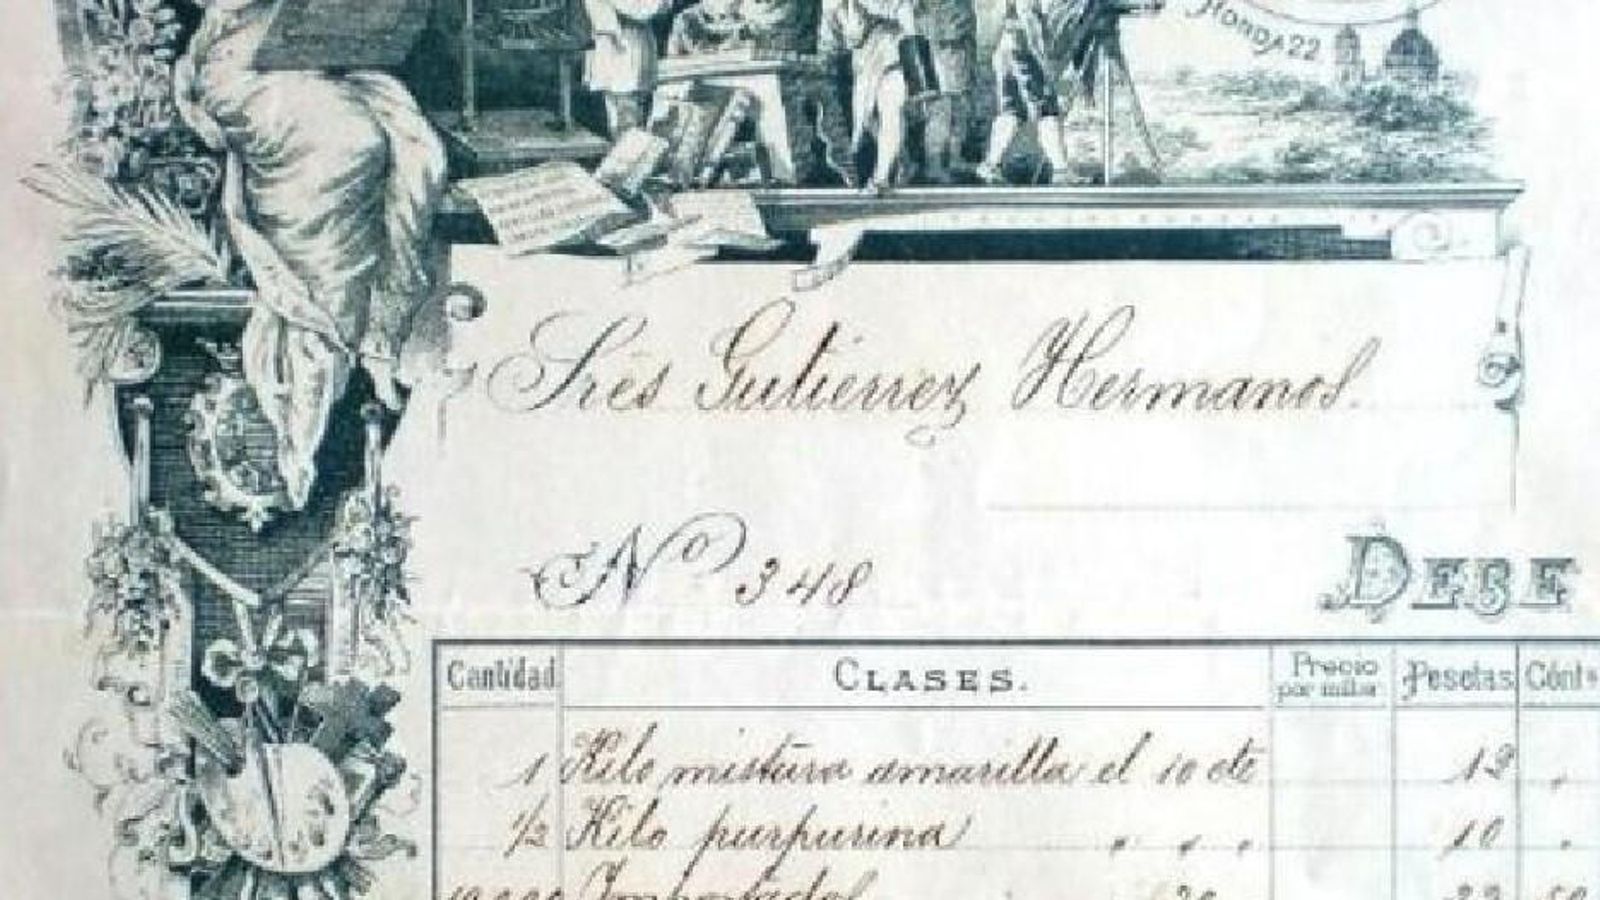 Honda 22
Sres Gutierrez Hermanos.
Nº 348
DEBE
Cantidad CLASES. Precio por millar Pesetas Cénts
1 Kilo mistura amarilla el 10 cte 12 "
1/2 Kilo purpurina " " " 10 "